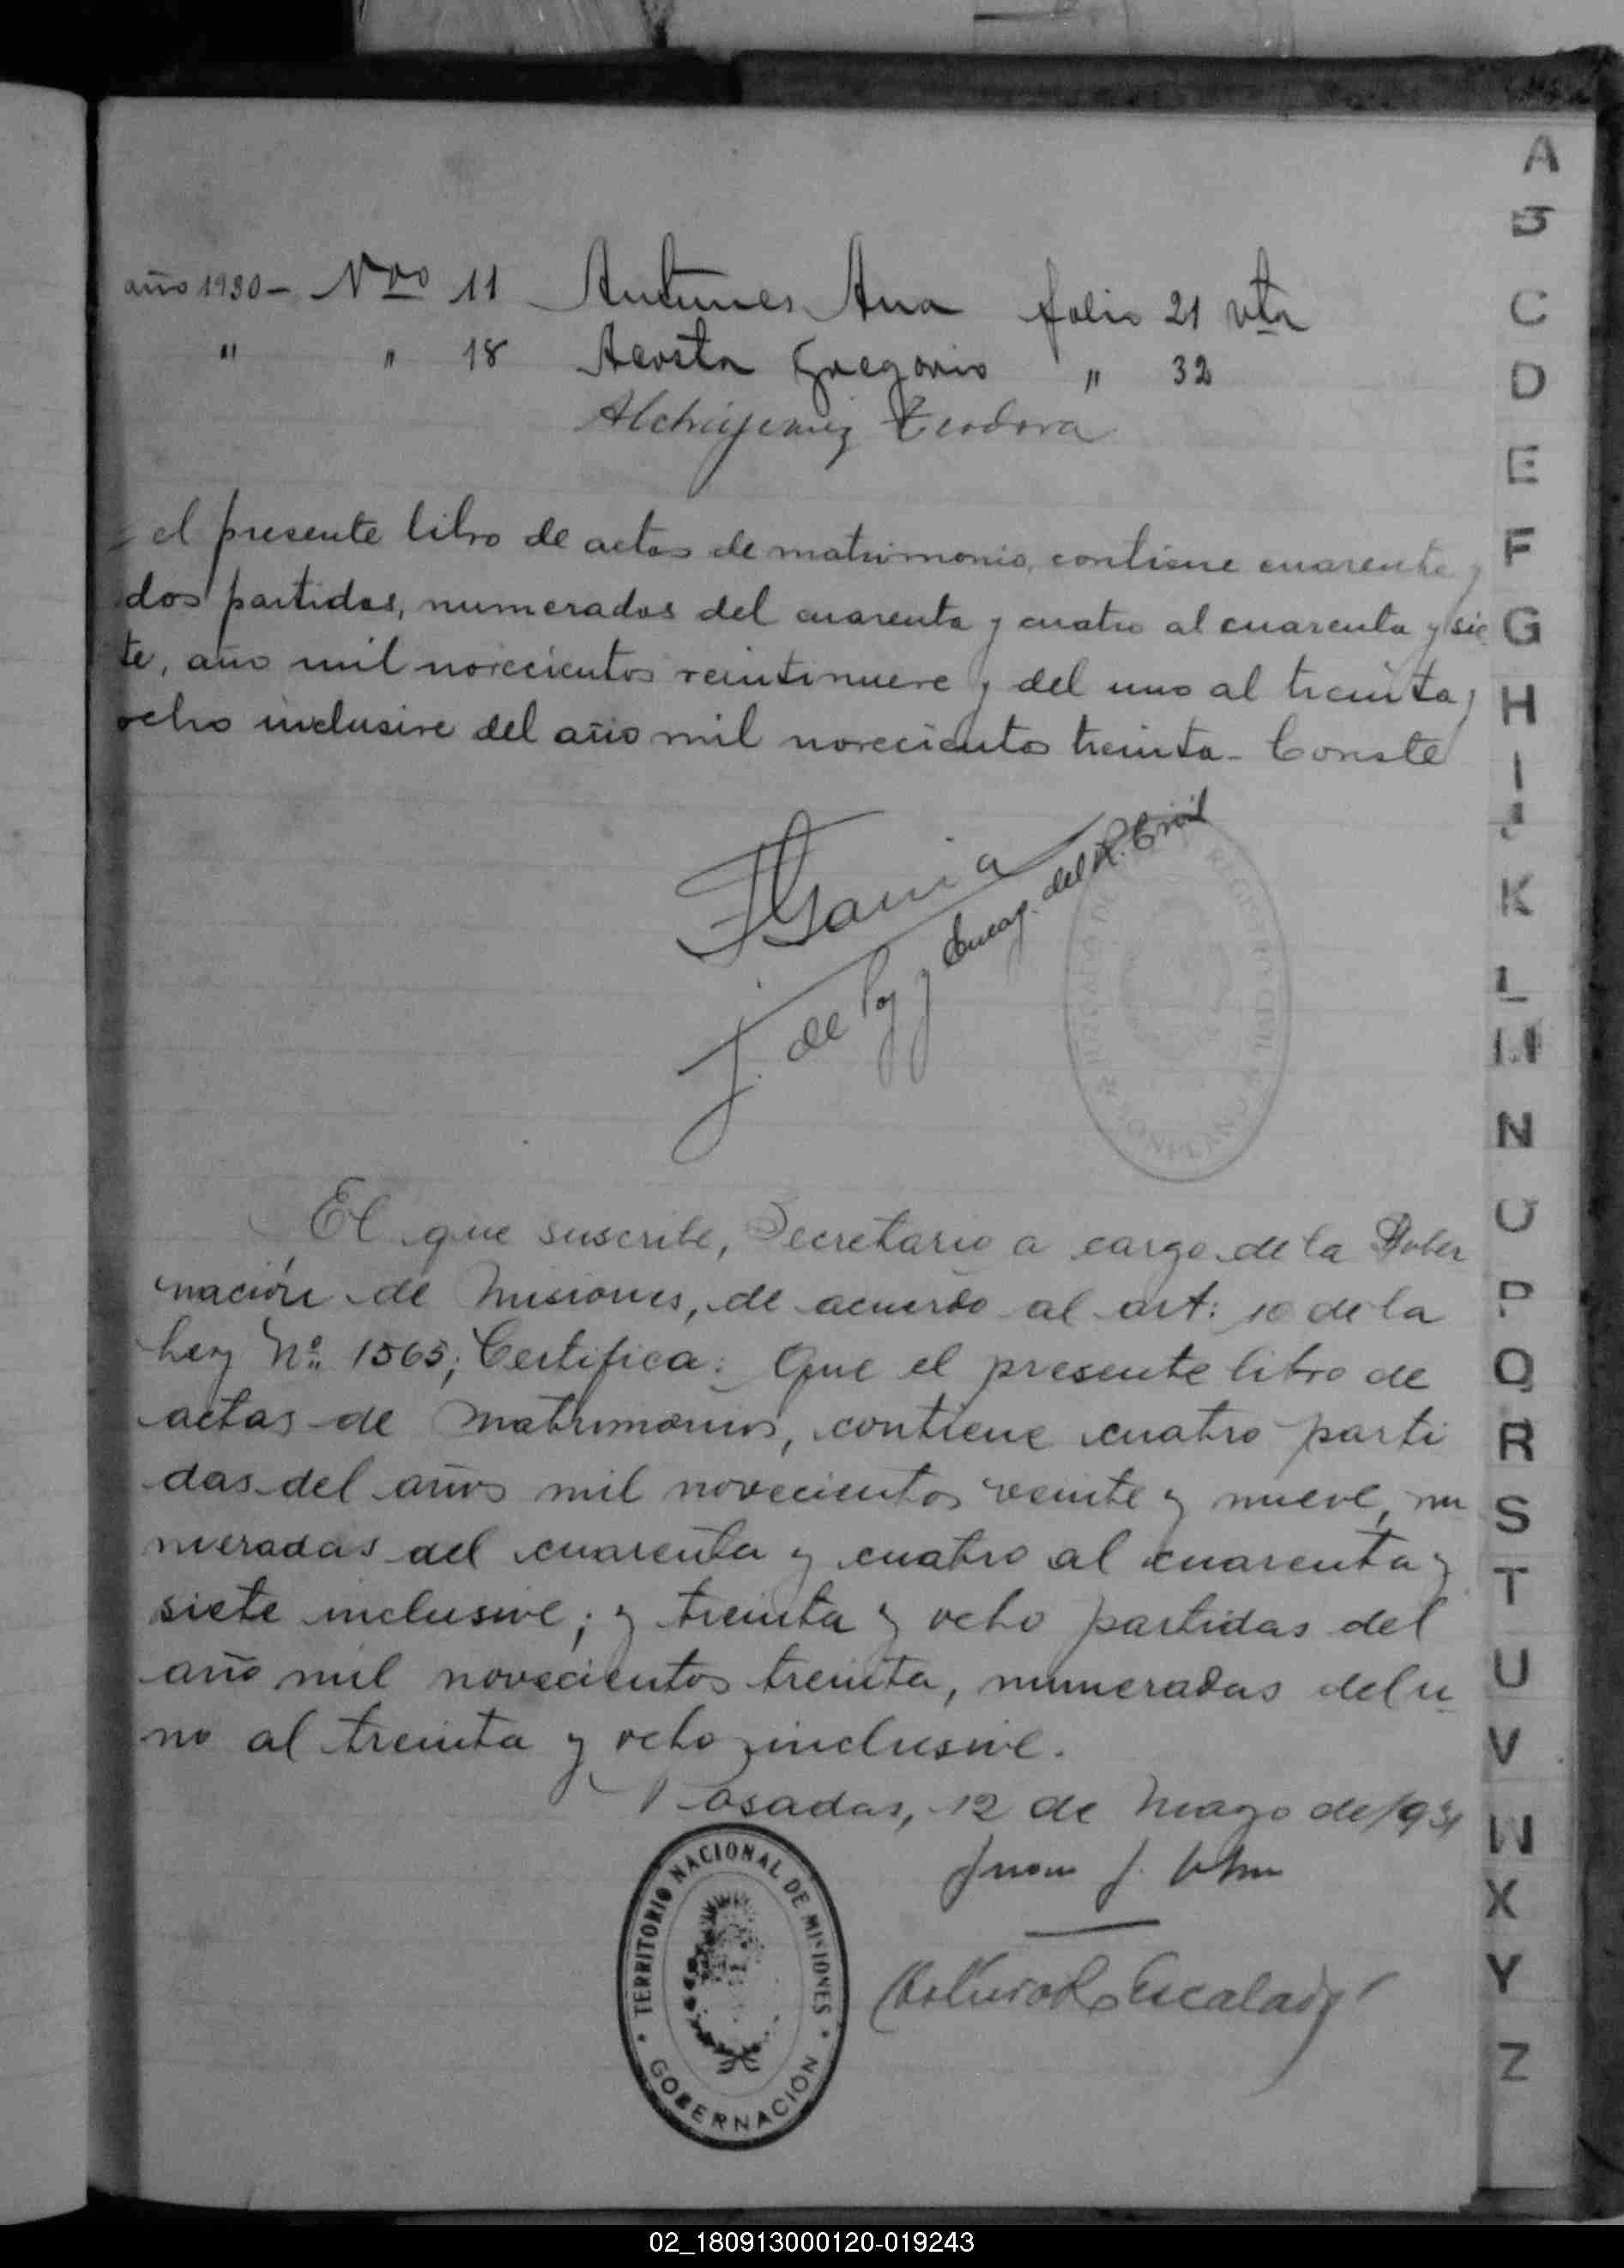 año 1930- Nro 11 Antunes Ana folio 21 vta
" " 18 Acosta Gregorio " 32
Teodora
= el presente libro de actas de matrimonio, contiene cuarenta y
dos partidas, numeradas del cuarenta y cuatro al cuarenta y sie
te, año mil novecientos veintinueve y del uno al treinta y
ocho inclusive del año mil novecientos treinta - Conste
García
J. de Paz y Encag. del R. Civil
El que suscribe, Secretario a cargo de la Gober
nación de Misiones, de acuerdo al art: 10 de la
Ley Nº 1565; Certifica: Que el presente libro de
actas de Matrimonios, contiene cuatro parti
das del años mil novecientos veinte y nueve, nu
meradas del cuarenta y cuatro al cuarenta y
siete inclusive; y treinta y ocho partidas del
año mil novecientos treinta, numeradas del u
no al treinta y ocho inclusive.
Posadas, 12 de Mayo de 1931
Juan J.
Escalada
TERRITORIO NACIONAL DE MISIONES
GOBERNACIÓN
A
B
C
D
E
F
G
H
I
J
K
L
M
N
O
P
Q
R
S
T
U
V
W
X
Y
Z
02_180913000120-019243